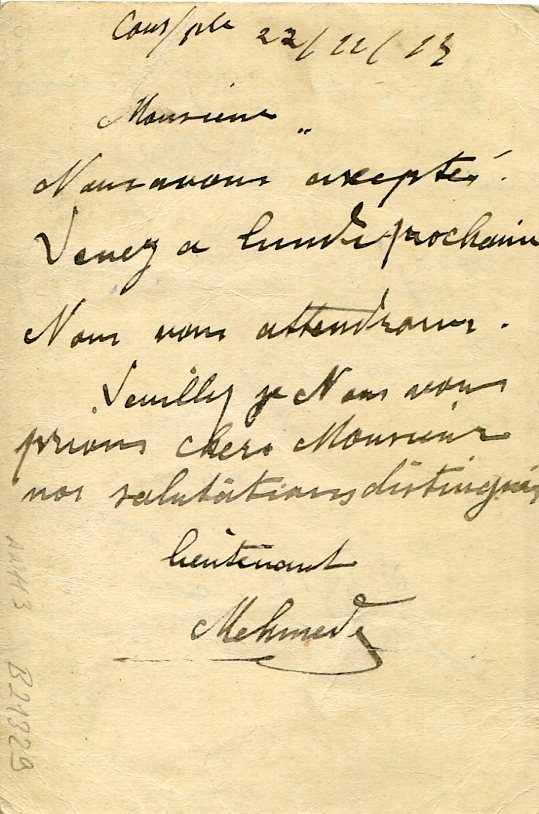 Cons/ple 22/11/13
Monsieur
Nous avons axepté.
Venez a lundi prochain
Nous vous attendrons.
Veuillez je Nous vous
prions chere Monsieur
nos salutations distingués
lieutenant
Mehmed
B21329